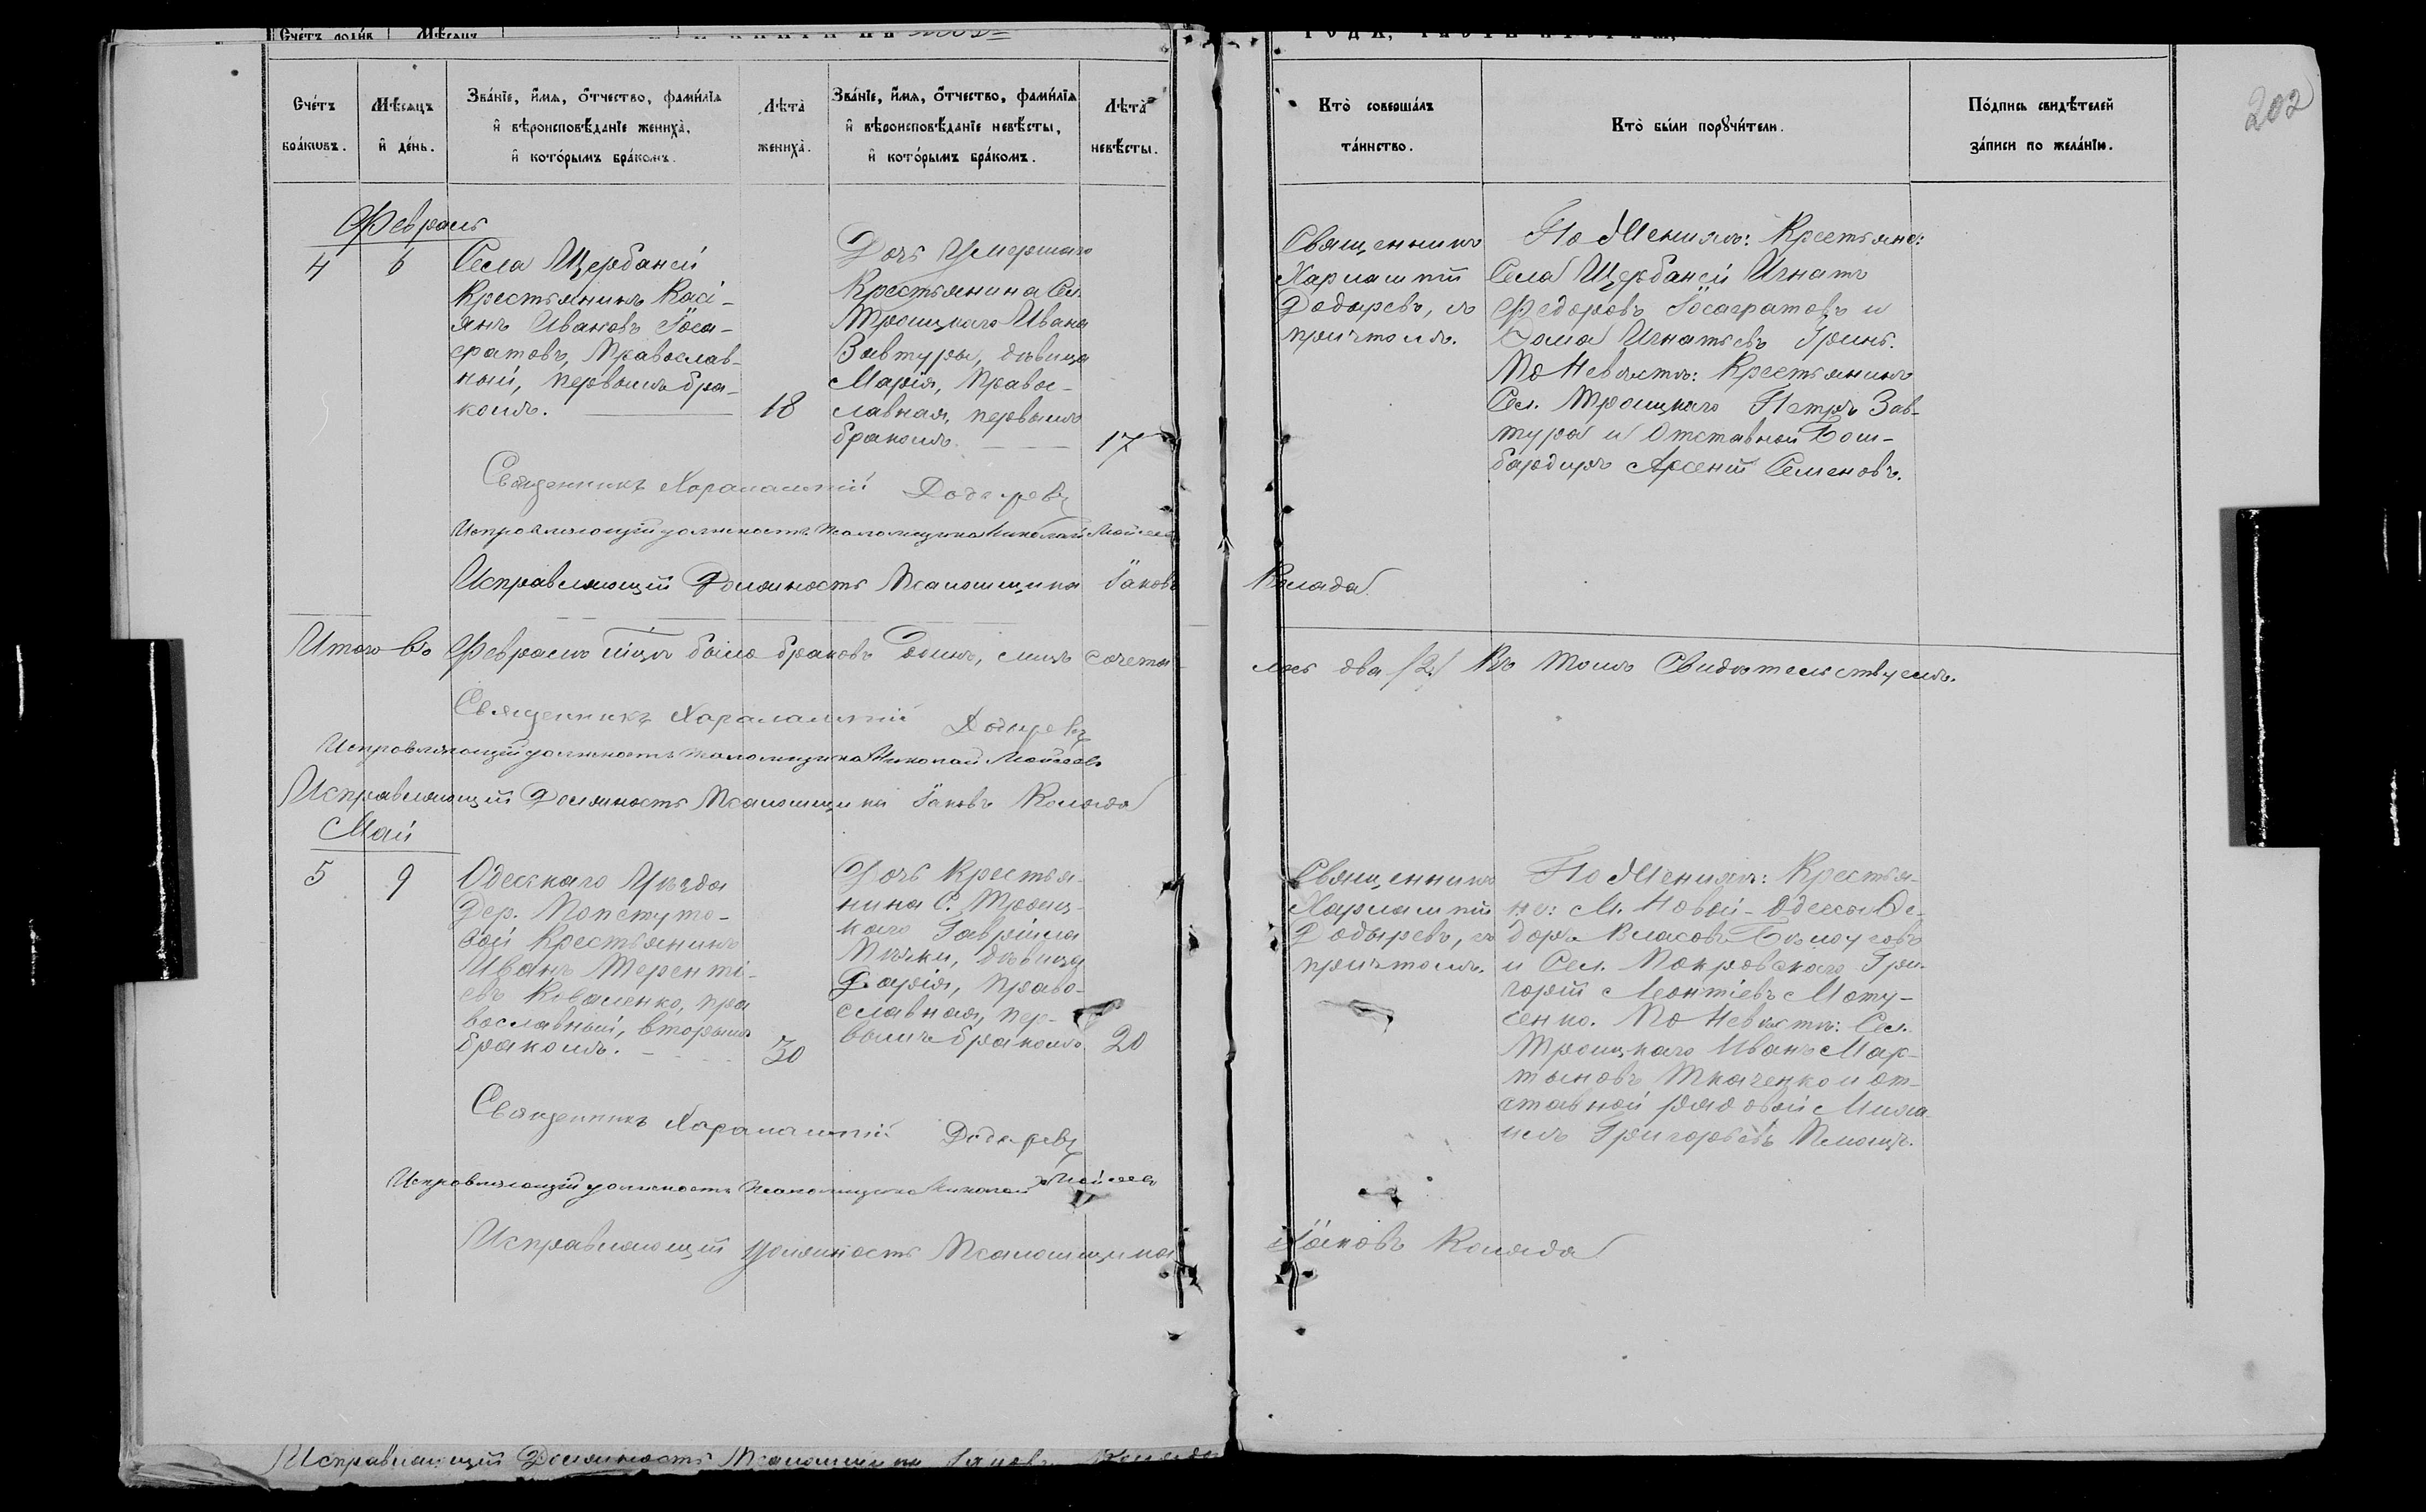 Счетъ бракωвъ.
Мѣсяцъ и день.
Званіе, имя, отчество, фамилія и вѣроисповѣданіе жениха, и которымъ бракомъ.
Лѣта жениха.
Званіе, имя, отчество, фамилія и вѣроисповѣданіе невѣсты, и которымъ бракомъ.
Лѣта невѣсты.
Кто совершалъ таинство.
Кто были поручители.
Подпись свидѣтелей записи по желанію.
202
Февраль
4
6
Села Щербаней
Крестьянинъ Касі-
янъ Ивановъ
Православ-
ный, первымъ бра-
комъ.
18
Дочь Умершаго
Крестьянина Сел.
Троицкаго Ивана
Завтуры, дѣвица
Марія, Правос-
лавная, первымъ
бракомъ.
17
Священникъ
Харлампій
Додыревъ, съ
причтомъ.
По Женихѣ: Крестьяне:
Села Щербаней Игнатъ
Федоровъ и
Фома Игнатьевъ Гринь.
По Невѣстѣ: Крестьянинъ
Сел. Троицкаго Петръ Зав-
тура и Отставной Бом-
бардиръ Арсеній Семеновъ.
Священникъ Харалампій Додыревъ
Исправляющій должность Псаломщика Николай Мойсеевъ
Исправляющій Должность Псаломщика Іаковъ Коляда
Итого въ Февралѣ мцѣ было браковъ Одинъ, лицъ сочета-
лось два /2/ Въ томъ Свидѣтельствуемъ.
Священникъ Харалампій Додыревъ
Исправляющій должность Псаломщика Николай Мойсеевъ
Исправляющій Должность Псаломщика Іаковъ Коляда
Май
5
9
Одесскаго Уѣзда
Дер.
Крестьянинъ
Иванъ Теренті-
евъ Коваленко, пра
вославный, вторымъ
бракомъ.
30
Дочь Крестья-
нина С. Троиц-
каго Гавріила
дѣвица
Дарія, Право-
славная, пер-
вымъ бракомъ
20
Священникъ
Харлампій
Додыревъ, съ
причтомъ.
По Женихѣ: Крестья-
не: М. Новой-Одессы Ѳе-
доръ Власовъ Бѣлоусовъ
и Сел. Покровскаго Гри-
горій Леонтіевъ Моту-
сенко. По Невѣстѣ: Сел.
Троицкаго Иванъ Мар-
тыновъ Ткаченко и от-
ставной рядовой Миха
илъ Григорьевъ
Священникъ Харалампій Додыревъ
Исправляющій должность Псаломщика Николай Мойсеевъ
Исправляющій должность Псаломщика Іаковъ Коляда
Исправляющій Должность Псаломщика Іаковъ Коляда